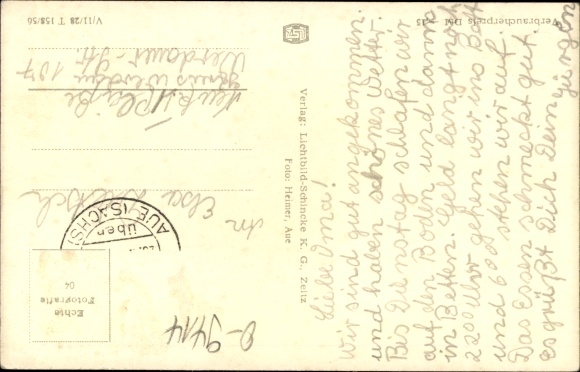 Liebe Oma!
Wir sind gut angekommen.
und haben schönes Wetter.
Bis Dienstag schlafen wir
auf den Boden und dann
in Betten. Geld langt noch
2200 Uhr gehen wir ins Bett
und 600 stehen wir auf.
Das Essen schmeckt gut.
es grüßt Dich Dein
Jürgen
Verlag: Lichtbild-Schincke K. G., Zeitz
Foto: Heimer, Aue
V/11/28 T 158/56
Verbraucherpreis DM —.15
Echte
Fotografie
04
AUE (SACHS)
über
An
Elsa
Werdauer-Str.
0-9414